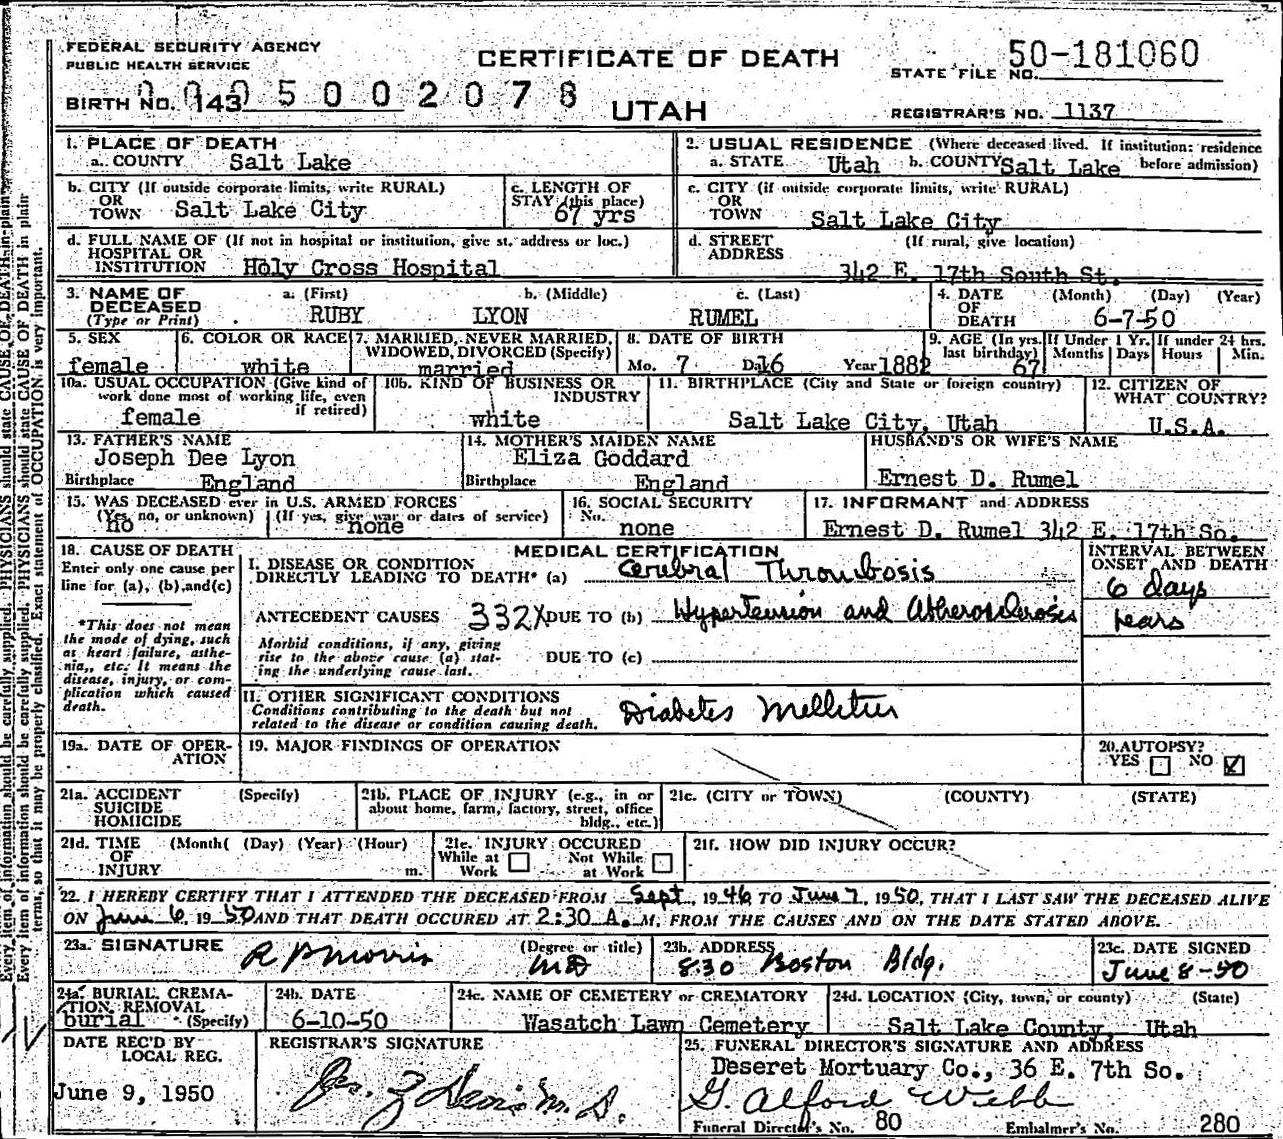 FEDERAL SECURITY AGENCY
PUBLIC HEALTH SERVICE
CERTIFICATE OF DEATH
STATE FILE NO. 50-181060
BIRTH NO. 143 0005002078
UTAH
REGISTRAR'S NO. 1137
1. PLACE OF DEATH
a. COUNTY Salt Lake
2. USUAL RESIDENCE (Where deceased lived. If institution: residence before admission)
a. STATE Utah b. COUNTY Salt Lake
b. CITY (If outside corporate limits, write RURAL)
OR
TOWN Salt Lake City
c. LENGTH OF
STAY (this place)
67 yrs
c. CITY (if outside corporate limits, write RURAL)
OR
TOWN Salt Lake City
d. FULL NAME OF (If not in hospital or institution, give st. address or loc.)
HOSPITAL OR
INSTITUTION Holy Cross Hospital
d. STREET (If rural, give location)
ADDRESS 342 E. 17th South St.
3. NAME OF DECEASED
(Type or Print)
a. (First) b. (Middle) c. (Last)
RUBY LYON RUMEL
4. DATE OF DEATH (Month) (Day) (Year)
6-7-50
5. SEX
female
6. COLOR OR RACE
white
7. MARRIED, NEVER MARRIED,
WIDOWED, DIVORCED (Specify)
married
8. DATE OF BIRTH
Mo. 7 Da. 16 Year 1882
9. AGE (In yrs.
last birthday)
67
If Under 1 Yr.
Months Days
If under 24 hrs.
Hours Min.
10a. USUAL OCCUPATION (Give kind of
work done most of working life, even
if retired)
female
10b. KIND OF BUSINESS OR
INDUSTRY
white
11. BIRTHPLACE (City and State or foreign country)
Salt Lake City, Utah
12. CITIZEN OF
WHAT COUNTRY?
U.S.A.
13. FATHER'S NAME
Joseph Dee Lyon
Birthplace England
14. MOTHER'S MAIDEN NAME
Eliza Goddard
Birthplace England
HUSBAND'S OR WIFE'S NAME
Ernest D. Rumel
15. WAS DECEASED ever in U.S. ARMED FORCES
(Yes, no, or unknown) (If yes, give war or dates of service)
no none
16. SOCIAL SECURITY
No.
none
17. INFORMANT and ADDRESS
Ernest D. Rumel 342 E. 17th So.
18. CAUSE OF DEATH
Enter only one cause per
line for (a), (b), and (c)
*This does not mean
the mode of dying, such
as heart failure, asthe-
nia, etc. It means the
disease, injury, or com-
plication which caused
death.
MEDICAL CERTIFICATION
I. DISEASE OR CONDITION
DIRECTLY LEADING TO DEATH* (a) Cerebral Thrombosis
ANTECEDENT CAUSES 332X DUE TO (b) Hypertension and Atherosclerosis
Morbid conditions, if any, giving
rise to the above cause (a) stat-
ing the underlying cause last.
DUE TO (c)
INTERVAL BETWEEN
ONSET AND DEATH
6 days
II. OTHER SIGNIFICANT CONDITIONS
Conditions contributing to the death but not
related to the disease or condition causing death.
Diabetes Mellitus
19a. DATE OF OPER-
ATION
19. MAJOR FINDINGS OF OPERATION
20. AUTOPSY?
YES NO
21a. ACCIDENT (Specify)
SUICIDE
HOMICIDE
21b. PLACE OF INJURY (e.g., in or
about home, farm, factory, street, office
bldg., etc.)
21c. (CITY or TOWN) (COUNTY) (STATE)
21d. TIME (Month( (Day) (Year) (Hour)
OF
INJURY m.
21e. INJURY OCCURED
While at Work Not While at Work
21f. HOW DID INJURY OCCUR?
22. I HEREBY CERTIFY THAT I ATTENDED THE DECEASED FROM Sept, 1946 TO June 7, 1950, THAT I LAST SAW THE DECEASED ALIVE
ON June 6, 1950 AND THAT DEATH OCCURED AT 2:30 A. M. FROM THE CAUSES AND ON THE DATE STATED ABOVE.
23a. SIGNATURE (Degree or title)
R P Morris MD
23b. ADDRESS
830 Boston Bldg.
23c. DATE SIGNED
June 8-50
24a. BURIAL, CREMA-
TION, REMOVAL
burial (Specify)
24b. DATE
6-10-50
24c. NAME OF CEMETERY or CREMATORY
Wasatch Lawn Cemetery
24d. LOCATION (City, town, or county) (State)
Salt Lake County, Utah
DATE REC'D BY
LOCAL REG.
June 9, 1950
REGISTRAR'S SIGNATURE
25. FUNERAL DIRECTOR'S SIGNATURE AND ADDRESS
Deseret Mortuary Co., 36 E. 7th So.
G. Alford Webb
Funeral Director's No. 80 Embalmer's No. 280
Every item of information should be carefully supplied. PHYSICIANS should state CAUSE OF DEATH in plain
terms, so that it may be properly classified. Exact statement of OCCUPATION is very important.